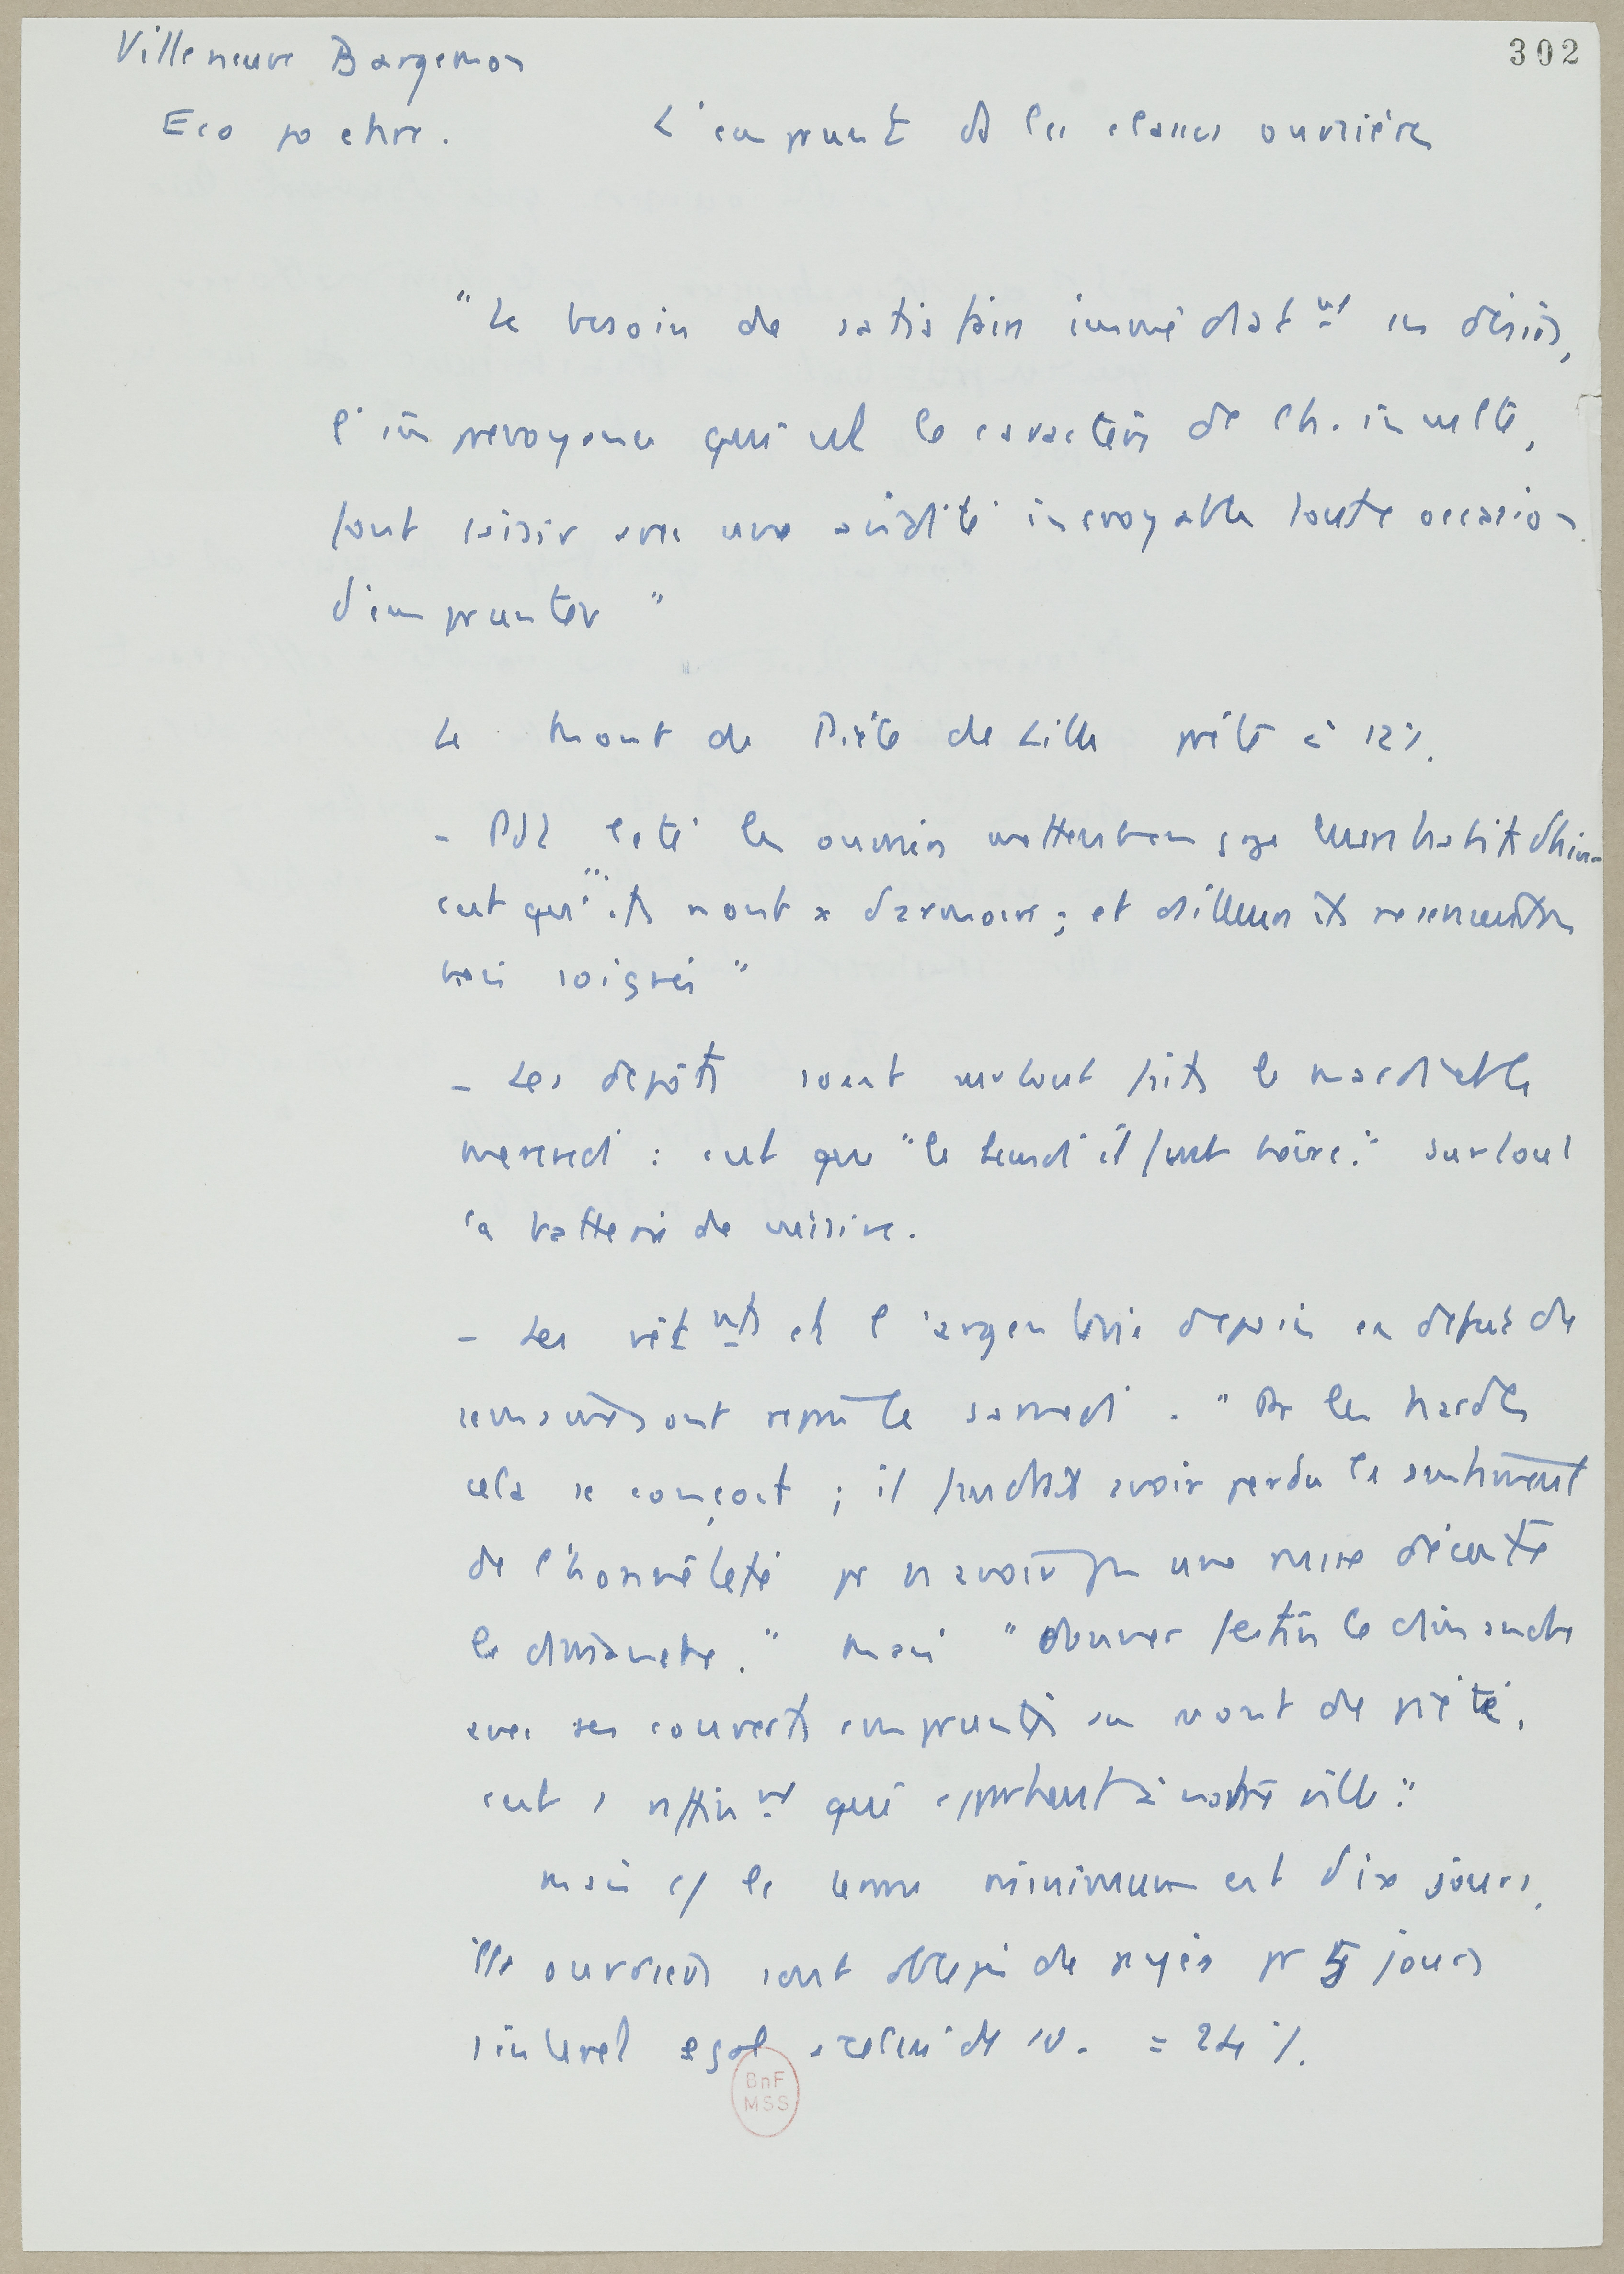 Villeneuve Bargemon
302
Eco po chre.
L'emprunt ds les classes ouvrières
"Le besoin de satisfaire immédiatmt ses désirs,
l'imprévoyance qui est le caractère de l'h. inculte,
font saisir avec une avidité incroyable toute occasion
d'emprunter"
Le Mont de Piété de Lille prête à 12%.
- Pdt l'été les ouvriers mettent en gage leurs habits d'hiver
c'est qu'"ils n'ont x d'armoire; et d'ailleurs ils
bien soignés"
- Les dépôts sont surtout faits le mardi et le
mercredi : c'est que "le lundi il faut boire." Surtout
la batterie de cuisine.
- Les vêtmts et l'argenterie déposés en début de
semaine sont repris le samedi. "Pr les hardes
cela se conçoit ; il faudrait avoir perdu le sentiment
de l'honnêteté pr n'avoir pas une mise décente
le dimanche." Mais "donner festin le dimanche
avec ses couverts empruntés au mont de piété,
c'est 1 raffinmt qui appartient à notre ville."
Mais c/ le terme minimum est dix jours,
les ouvriers sont obligés de payer pr 5 jours
1 intérêt égal à celui de 10. = 24%.
BnF
MSS